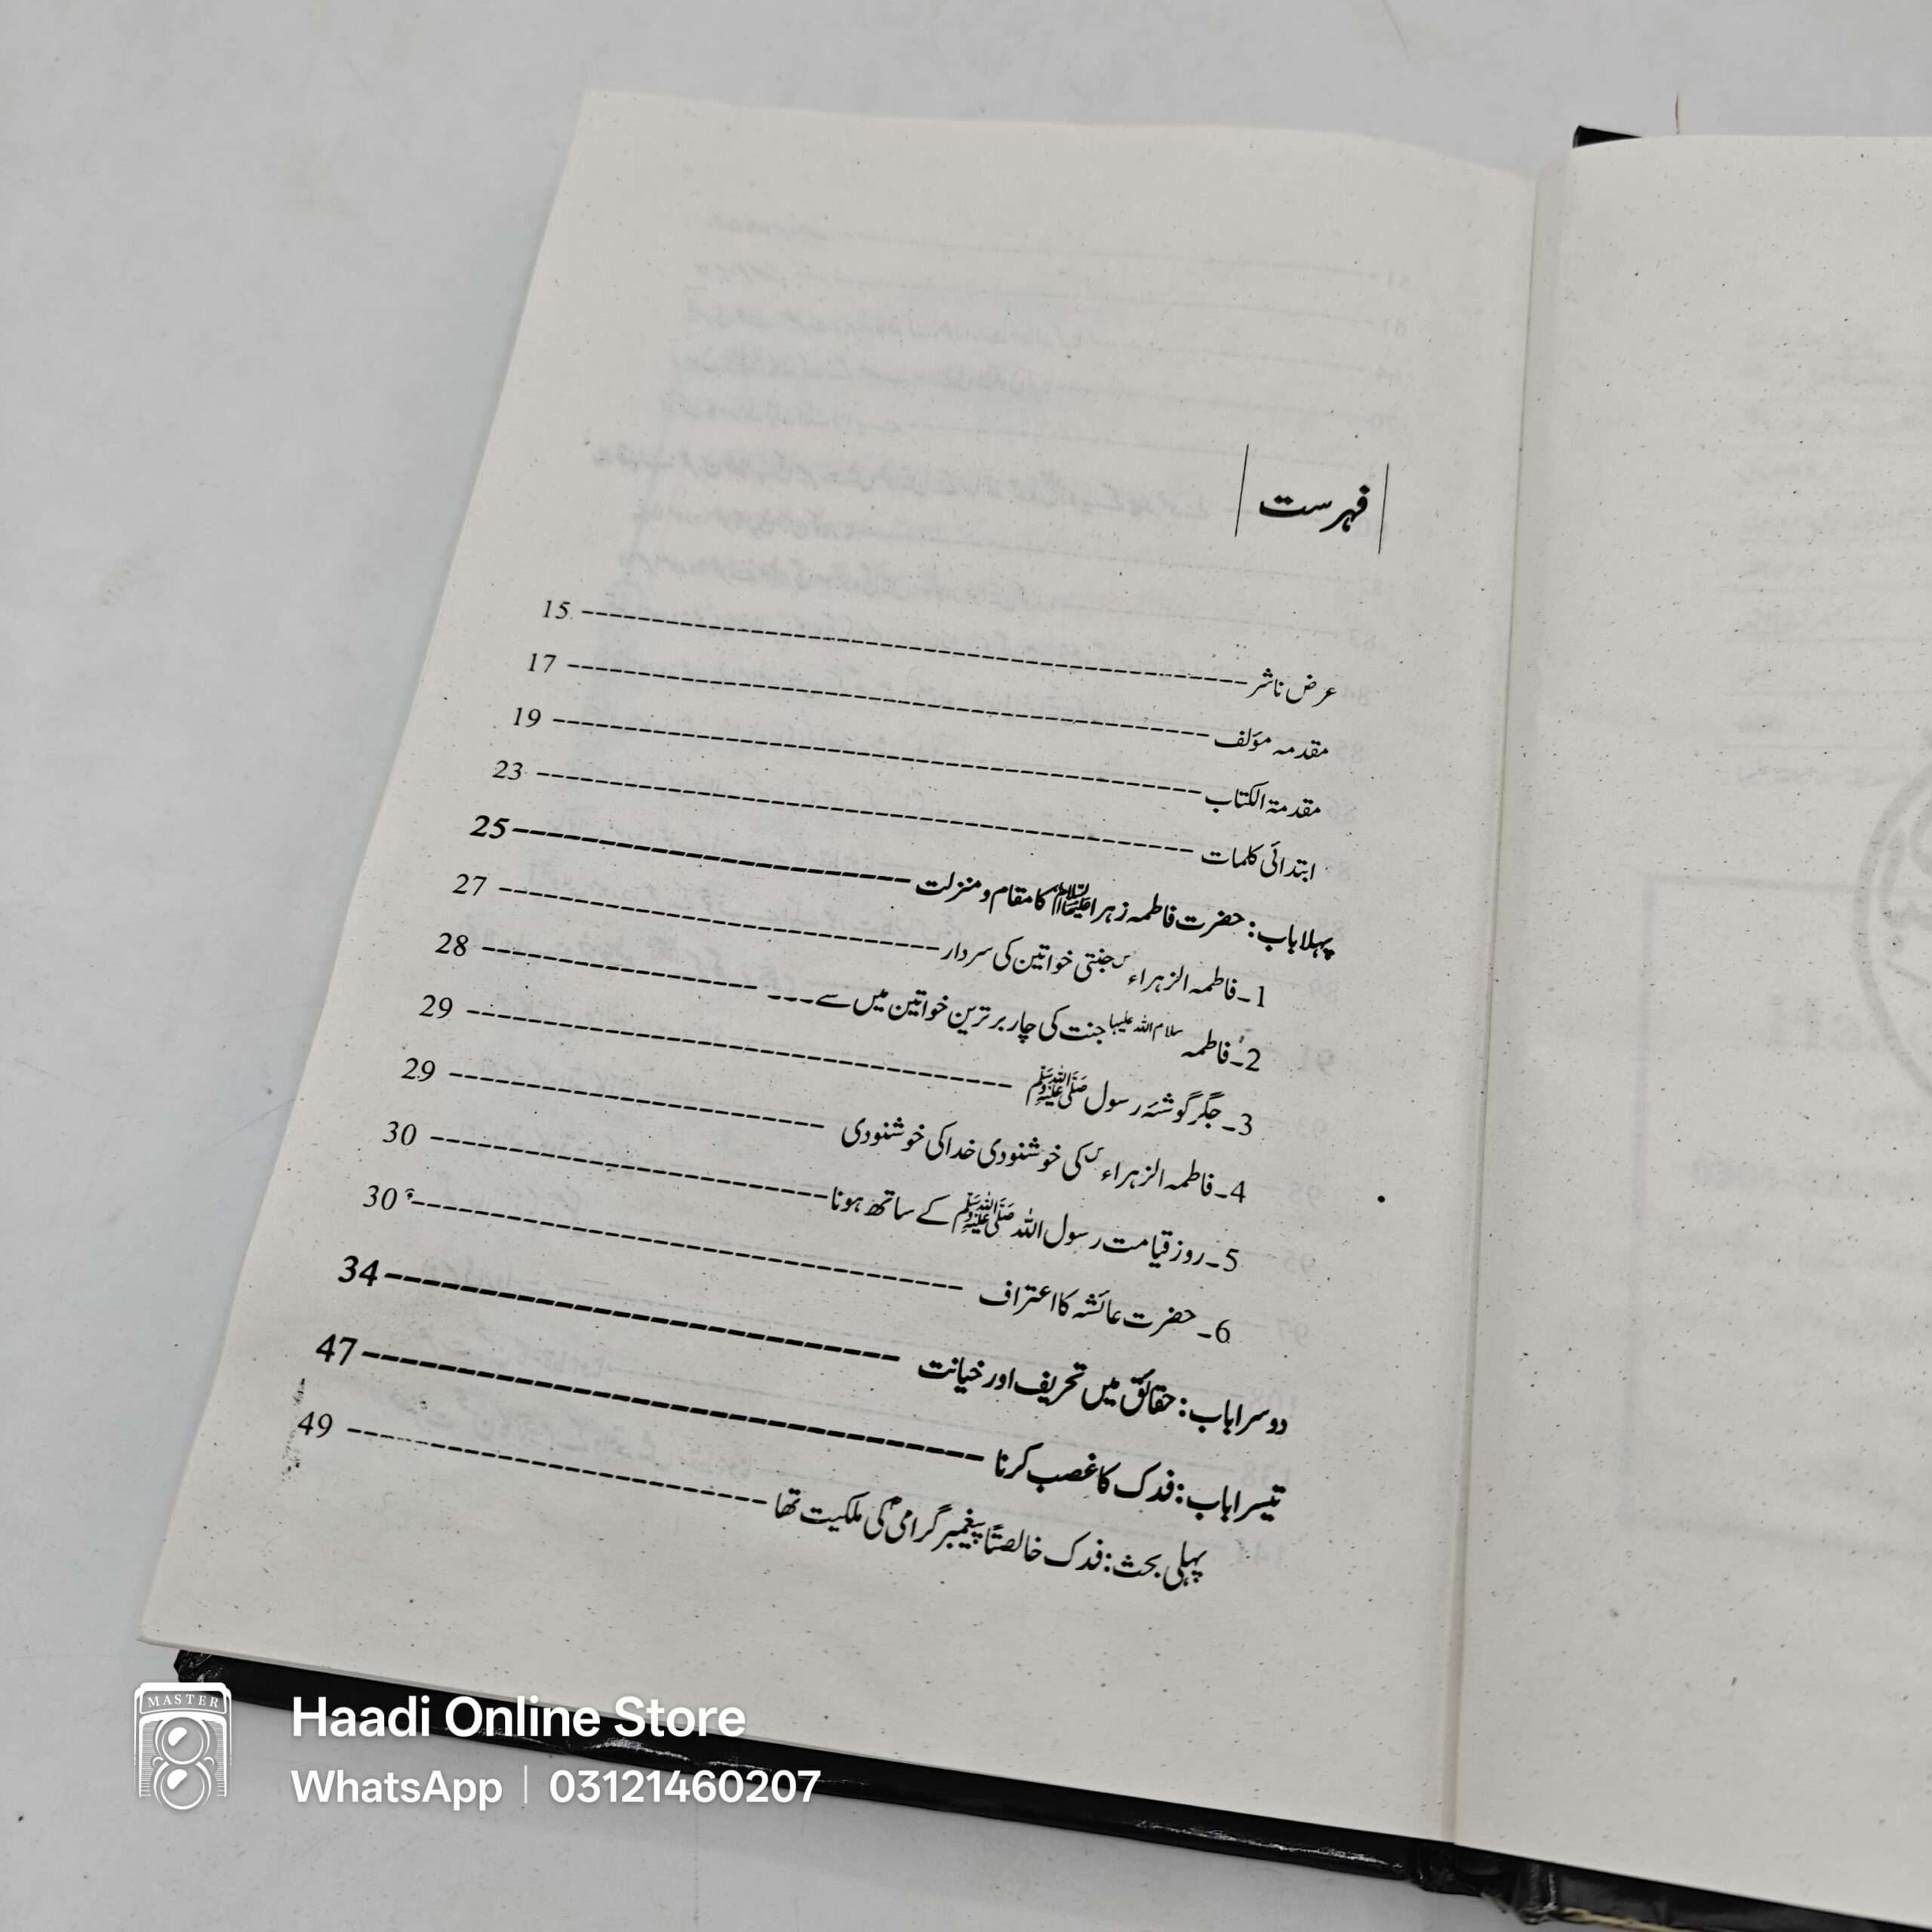 فہرست
عرض ناشر 15
مقدمہ مؤلف 17
مقدمۃ الکتاب 19
ابتدائی کلمات 23
پہلا باب: حضرت فاطمہ زہرا علیہا السلام کا مقام و منزلت 25
1۔ فاطمہ الزہراءؑ جنتی خواتین کی سردار 27
2۔ فاطمہ سلام اللہ علیہا جنت کی چار برترین خواتین میں سے۔۔۔ 28
3۔ جگر گوشۂ رسول ﷺ 29
4۔ فاطمہ الزہراءؑ کی خوشنودی خدا کی خوشنودی 29
5۔ روز قیامت رسول اللہ ﷺ کے ساتھ ہونا 30
6۔ حضرت عائشہ کا اعتراف 30
دوسرا باب: حقائق میں تحریف اور خیانت 34
تیسرا باب: فدک کا غصب کرنا 47
پہلی بحث: فدک خالصتاً پیغمبر گرامیؐ کی ملکیت تھا 49
MASTER
Haadi Online Store
WhatsApp | 03121460207